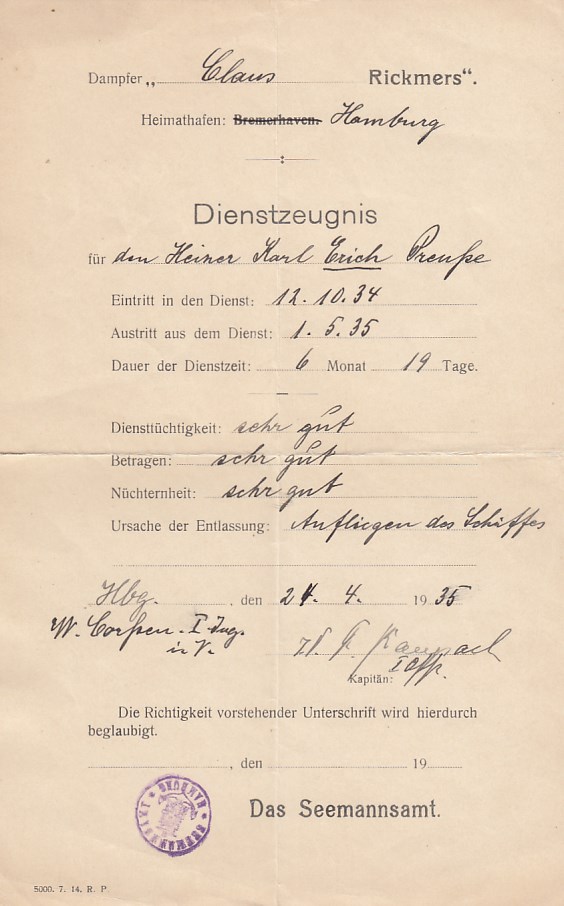 Dampfer „ Claus Rickmers“.
Heimathafen: Bremerhaven. Hamburg
Dienstzeugnis
für den Heizer Karl Erich Preuße
Eintritt in den Dienst: 12.10.34
Austritt aus dem Dienst: 1.5.35
Dauer der Dienstzeit: 6 Monat 19 Tage.
Diensttüchtigkeit: sehr gut
Betragen: sehr gut
Nüchternheit: sehr gut
Ursache der Entlassung: Aufliegen des Schiffes
Hbg. , den 24. 4. 1935
W. Corßen. I. Ing.
i. V.
I Offz.
Kapitän:
Die Richtigkeit vorstehender Unterschrift wird hierdurch
beglaubigt.
, den 19
SEEMANNSAMT * HAMBURG *
Das Seemannsamt.
5000. 7. 14. R. P.